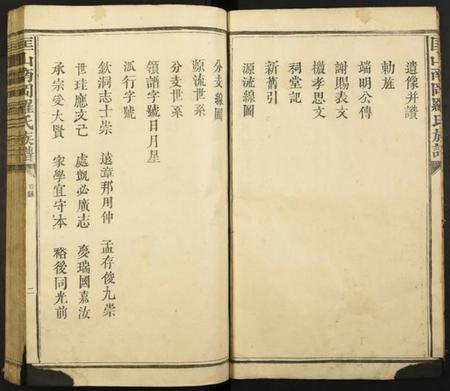 匡山南岡羅氏族譜
遺像并讚
勅旌
端明公傳
謝賜表文
檄孝思文
祠堂記
新舊引
源流線圖
分支線圖
源流世系
分支世系
領譜字號日月星
派行字號
欽洞志士崇 遠章那用仲 孟存俊九崇
世珪應文己 處凱必廣志 慶瑞國嘉汝
承宗受大賢 家學宜守本 裕後同光前
匡山南岡羅氏族譜
目錄
二